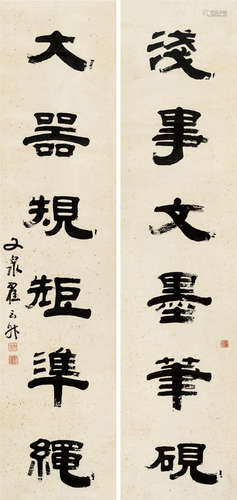 淺事文墨筆硯
大器規矩準繩
文泉翟云升